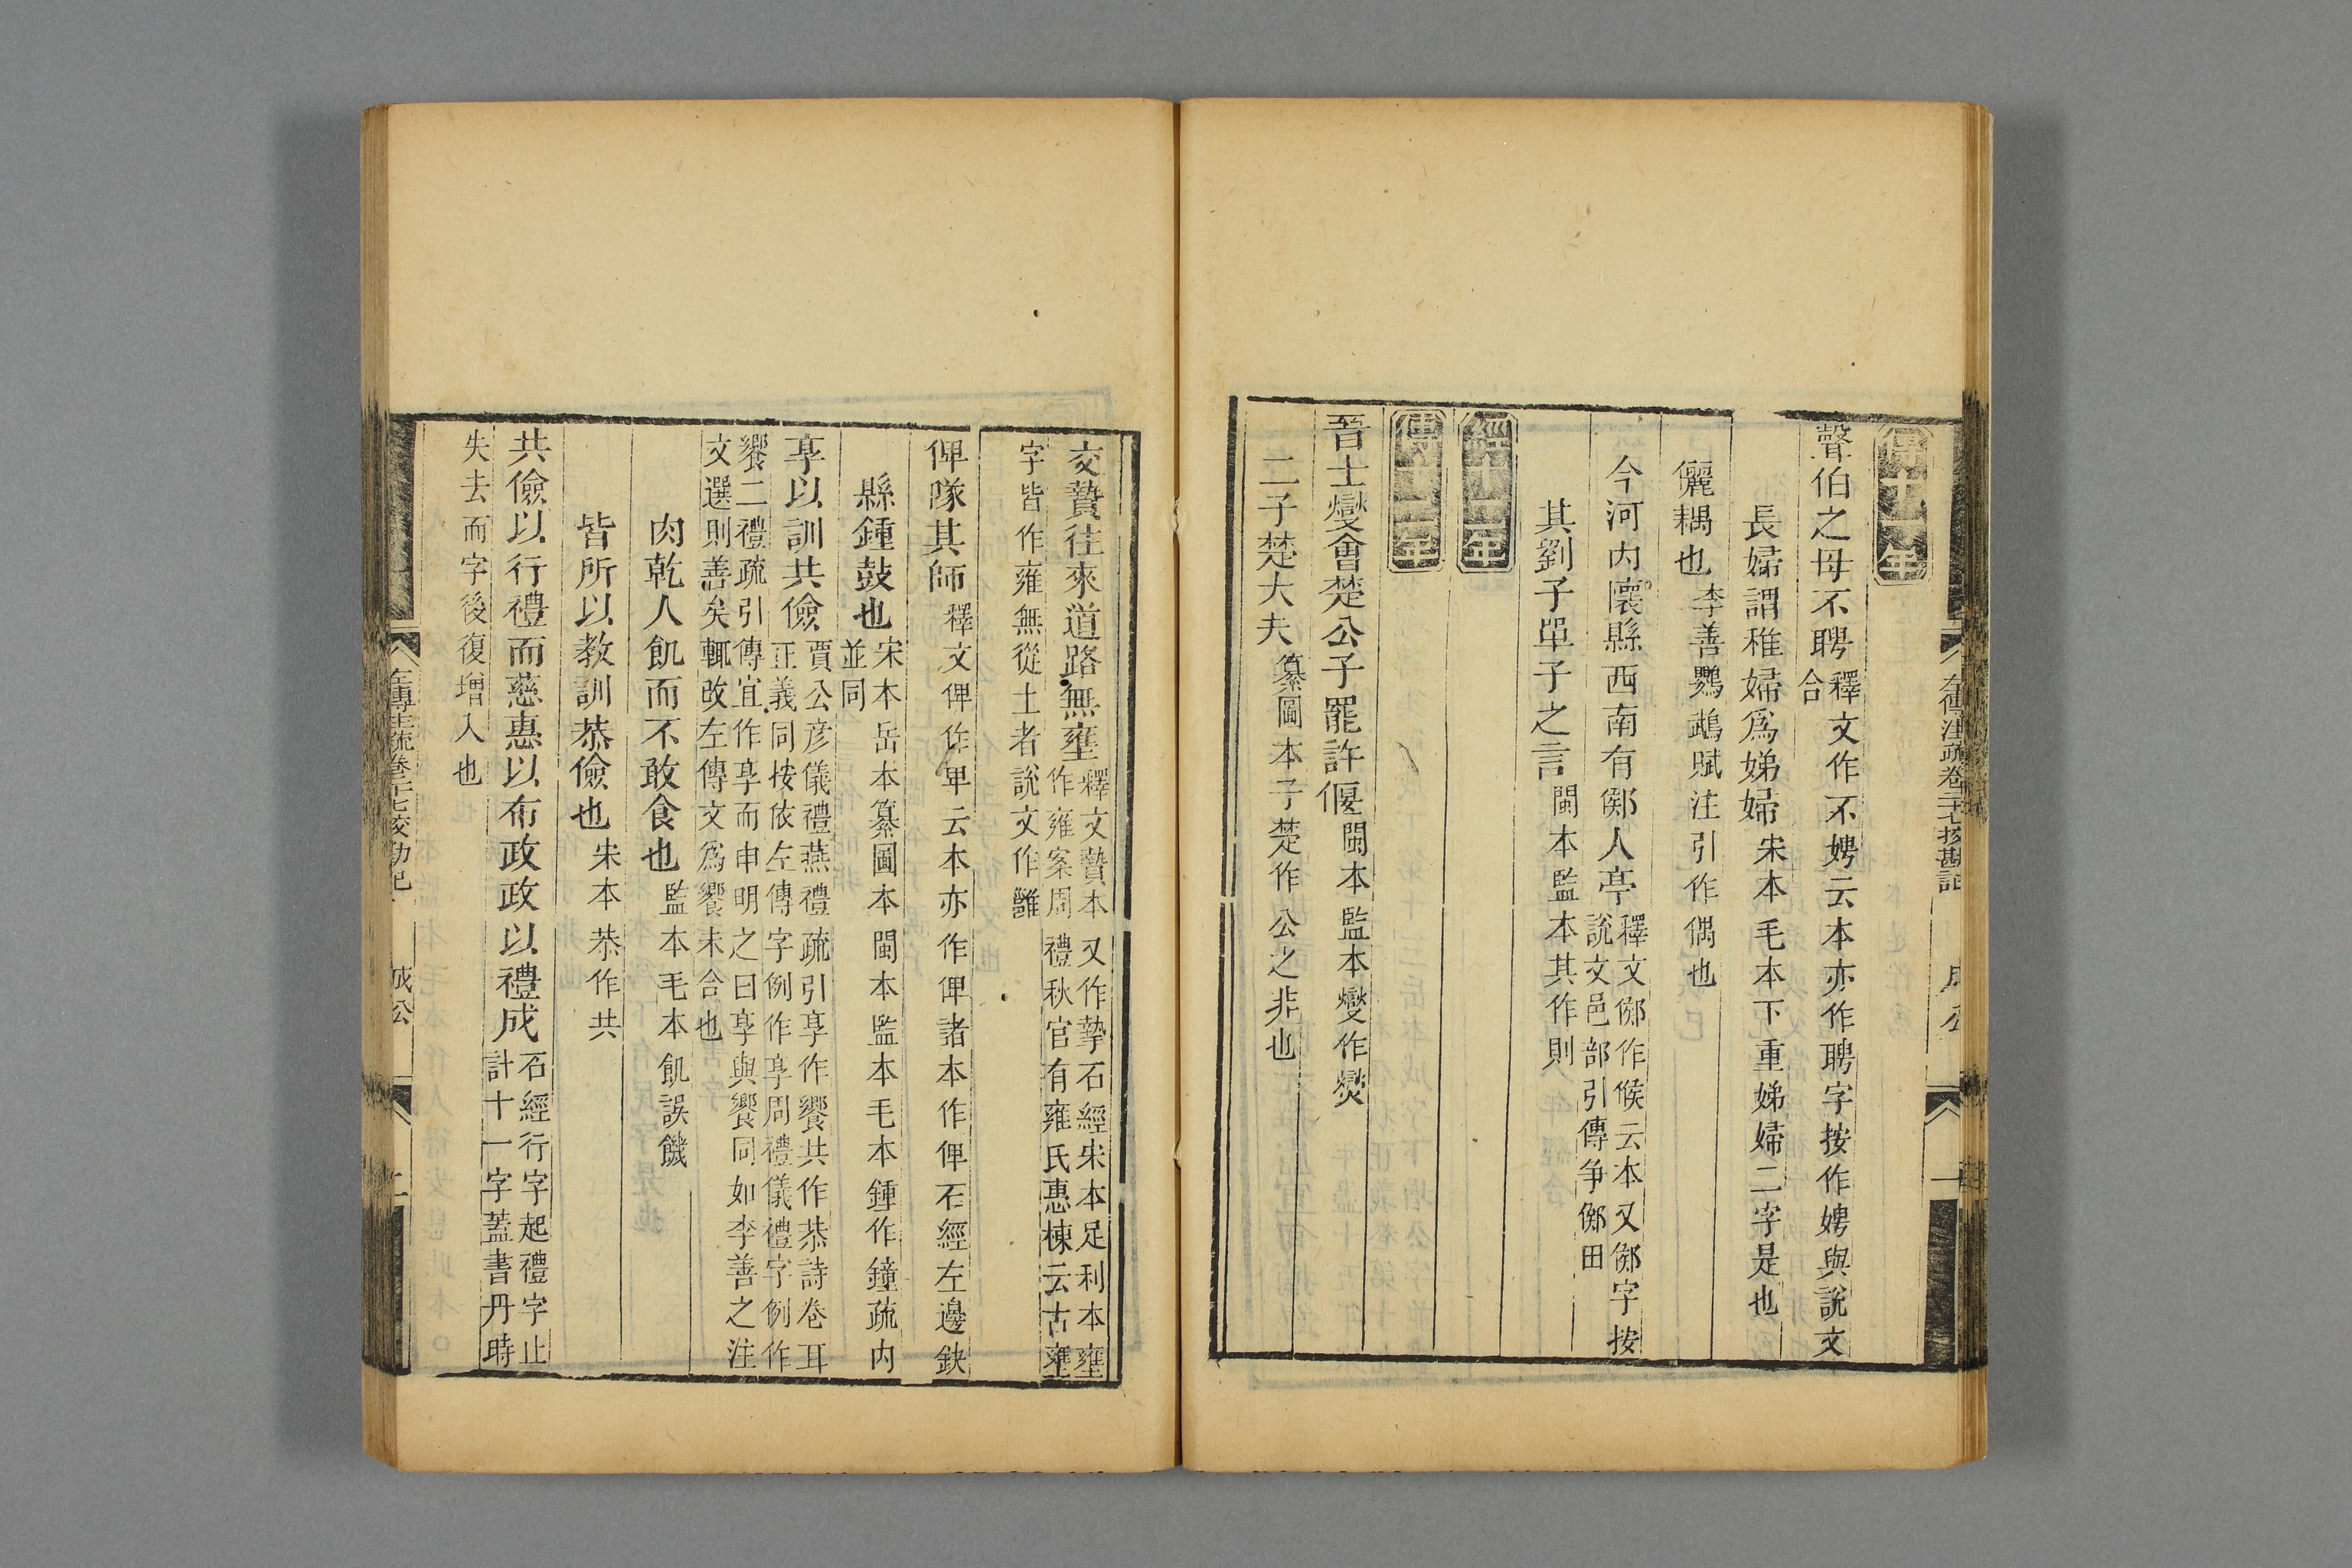 傳十一年
聲伯之母不聘釋文作不娉云本亦作聘字按作娉與說文
合
長婦謂稚婦爲娣婦宋本毛本下重娣婦二字是也
儷耦也李善鸚鵡賦注引作偶也
今河内懷縣西南有鄇人亭釋文鄇作候云本又鄇字按
說文邑部引傳爭鄇田
其劉子單子之言閩本監本其作則
經十二年
傳十二年
晉士燮會楚公子罷許偃閩本監本燮作爕
二子楚大夫纂圖本子楚作公之非也
左傳注疏卷二十七挍勘記
一
交贄往來道路無壅釋文贄本又作摯石經宋本足利本壅
作雍案周禮秋官有雍氏惠棟云古壅
字皆作雍無從土者說文作雝
俾隊其師釋文俾作卑云本亦作俾諸本作俾石經左邊缺
縣鍾鼓也宋本岳本纂圖本閩本監本毛本鍾作鐘疏内
並同
享以訓共儉賈公彦儀禮燕禮疏引享作饗共作恭詩卷耳
正義同按依左傳字例作享周禮儀禮字例作
饗二禮疏引傳宜作享而申明之曰享與饗同如李善之注
文選則善矣輒改左傳文爲饗未合也
肉乾人飢而不敢食也監本毛本飢誤饑
皆所以教訓恭儉也宋本恭作共
共儉以行禮而慈惠以布政政以禮成石經行字起禮字止
計十一字蓋書丹時
失去而字後復增入也
左傳注疏卷二十七挍勘記
成公